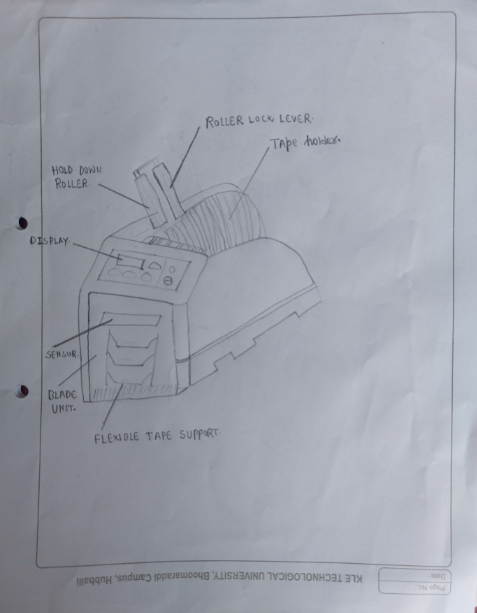 ROLLER LOCK LEVER.
Tape holder.
HOLD DOWN
ROLLER
DISPLAY.
SENSOR.
BLADE
UNIT.
FLEXIBLE TAPE SUPPORT
KLE TECHNOLOGICAL UNIVERSITY, Bhoomaraddi Campus, Hubballi
Page No.:
Date: